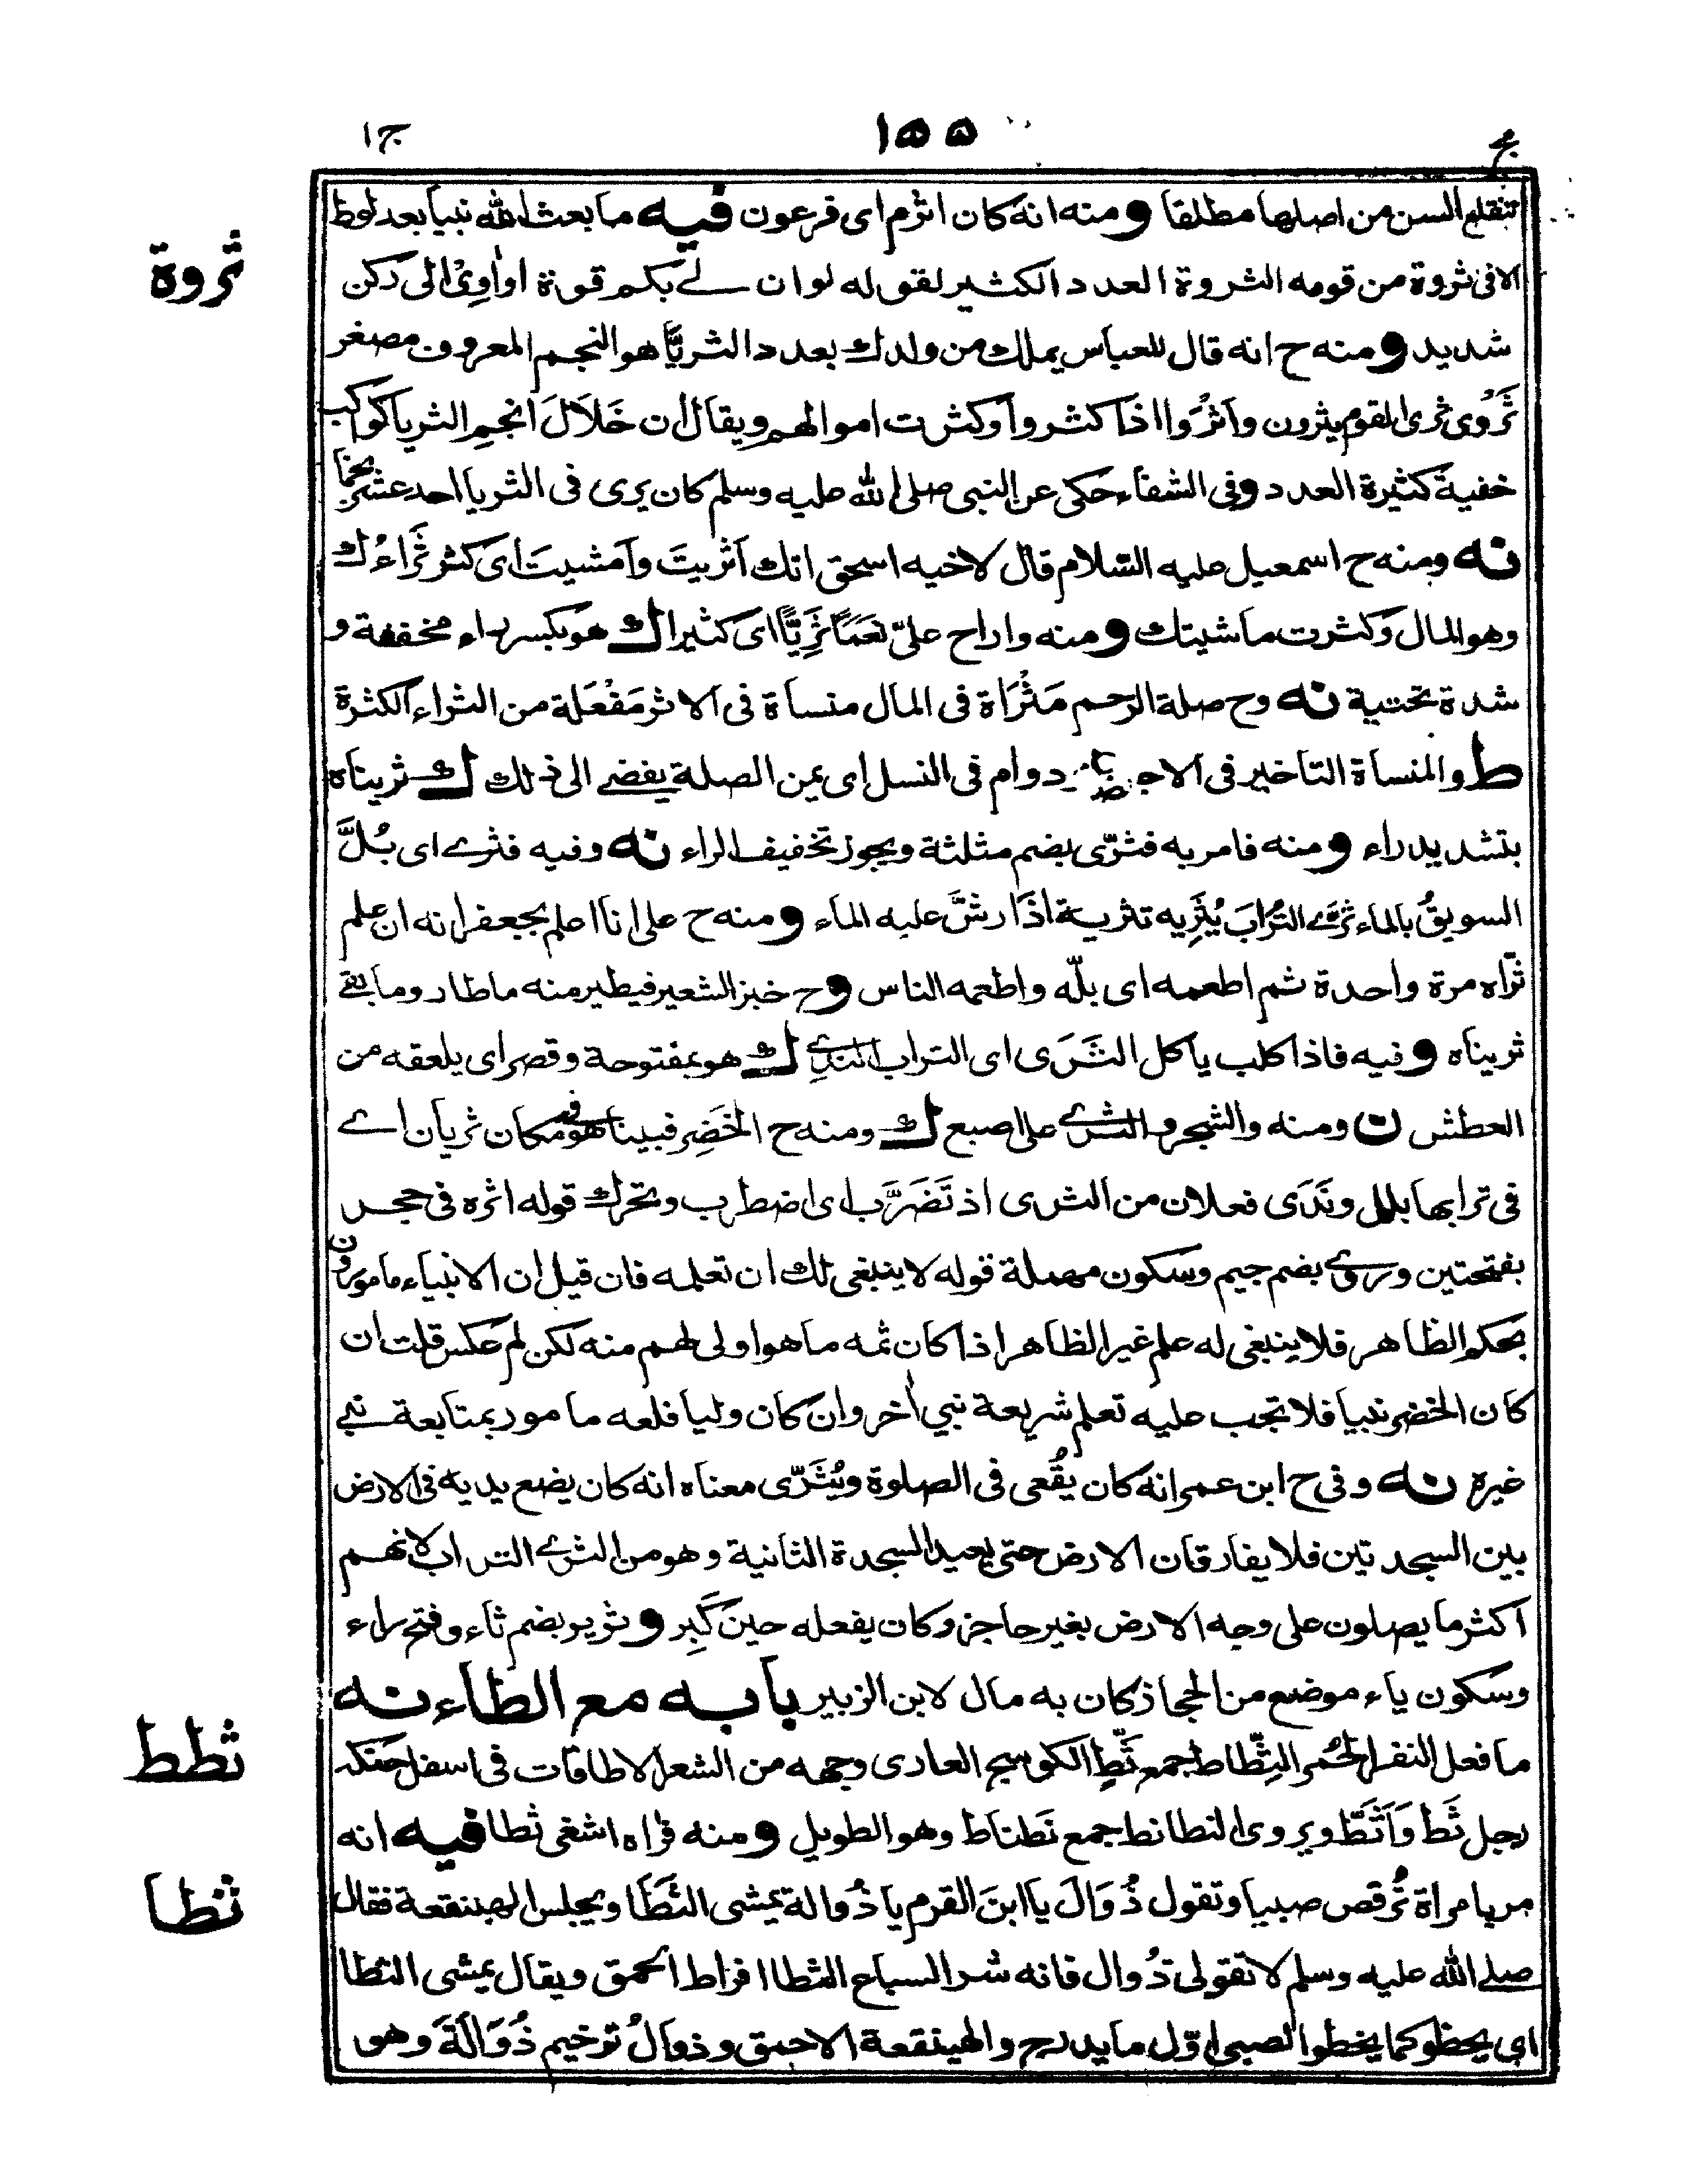 ج ١
١٥٥
مج
تنقلع السن من اصلها مطلقا ومنه انه كان اثرم اى فرعون فيه ما بعث الله نبيا بعد لوط
ثروة
الا فى ثروة من قومه الثروة العدد الكثير لقوله لو ان لے بكم قوة او اٰوِىْ الى ركن
شديد ومنه ح انه قال للعباس يملك من ولدك بعدد الثريَّا هو النجم المعروف مصغر
ثَرْوٰى ثرى القوم يثرون وأثرَوا اذا كثروا وكثرت اموالهم ويقال ان خَلَالَ انجم الثريا كواكب
خفية كثيرة العدد وفى الشفاء حكى عن النبى صلى الله عليه وسلم كان يرى فى الثريا احد عشر نجما
نه ومنه ح اسمعيل عليه السّلام قال لاخيه اسحق انك اَثريتَ واَمشيتَ اى كثر ثَراءُك
وهو المال وكثرت ماشيتك ومنه واراح علىّ نَعَمًا ثَرِيًّا اى كثيرا ك هو بكسر راء مخففة و
شدة تحتية نه وح صلة الرحم مَثْرَاة فى المال منساة فى الاثر مَفْعَلة من الثراء الكثرة
ط والمنساة التاخير فى الاجل دوام فى النسل اى يمن الصلة يفضے الى ذلك ك ثريناه
بتشديد راء ومنه فامر به فثرّى بضم مثلثة ويجوز تخفيف الراء نه وفيه فثرے اى بُلَّ
السويقُ بالماء ثرَّے الترابَ يُثَرِيه تثرية اذا رشَّ عليه الماء ومنه ح على انا اعلم بجعفر انه ان علم
ثرّاه مرة واحدة ثم اطعمه اى بلّه واطعمه الناس وح خبز الشعير فيطير منه ما طار وما بقے
ثريناه وفيه فاذا كلب ياكل الثَرَى اى التراب الندے ك هو بمفتوحة وقصر اى يلعقه من
العطش ن ومنه والشجر والثرے على اصبع ك ومنه ح الخَضِر فبينا هو فى مكان ثريان اے
فى ترابها بلل ونَدَى فعلان من الثرى اذ تَضَرَّب اى اضطرب وتحرك قوله اثره فى حجر
بفتحتين وروے بضم جيم وسكون مهملة قوله لا ينبغى لك ان تعلمه فان قيل ان الانبياء مامورون
بحكم الظاهر فلا ينبغى له علم غير الظاهر اذا كان ثمه ما هو اولى لهم منه لكن لم عكس قلت ان
كان الخضر نبيا فلا تجب عليه تعلم شريعة نبي اٰخر وان كان وليا فلعه مامور بمتابعة نبے
غيره نه وفى ح ابن عمر انه كان يُقْعى فى الصلوة ويُثَرّى معناه انه كان يضع يديه فى الارض
بين السجدتين فلا يفارقان الارض حتى يعيد السجدة الثانية وهو من الثرے التراب لانهم
اكثر ما يصلون على وجه الارض بغير حاجز وكان يفعله حين كَبِر وثرير بضم ثاء وفتح راء
وسكون ياء موضع من الحجاز كان به مال لابن الزبير بابه مع الطاء نه
ثطط
ما فعل النفر الحُمر الثِّطاط جمع ثَطٍّ الكوسج العارى وجهه من الشعر الا طاقات فى اسفل حنكه
رجل ثَط وَاَثَطّ ويروى النطانط جمع نَطناط وهو الطويل ومنه فراه اشغى ثطا فيه انه
ثطا
مر بامراة تُرقص صبيا وتقول ذُوَالَ يا ابنَ القرم يا ذُوالة يمشى الثَطَا ويجلس الهبنقعة فقال
صلے الله عليه وسلم لا تقولى ذُوال فانه شر السباع الثطا افراط الحمق ويقال يمشى الثطا
اى يخطو كما يخطو الصبى اوّل ما يدرج والهبنقعة الاحمق وذوالُ ترخيم ذُوَالَةَ وهى